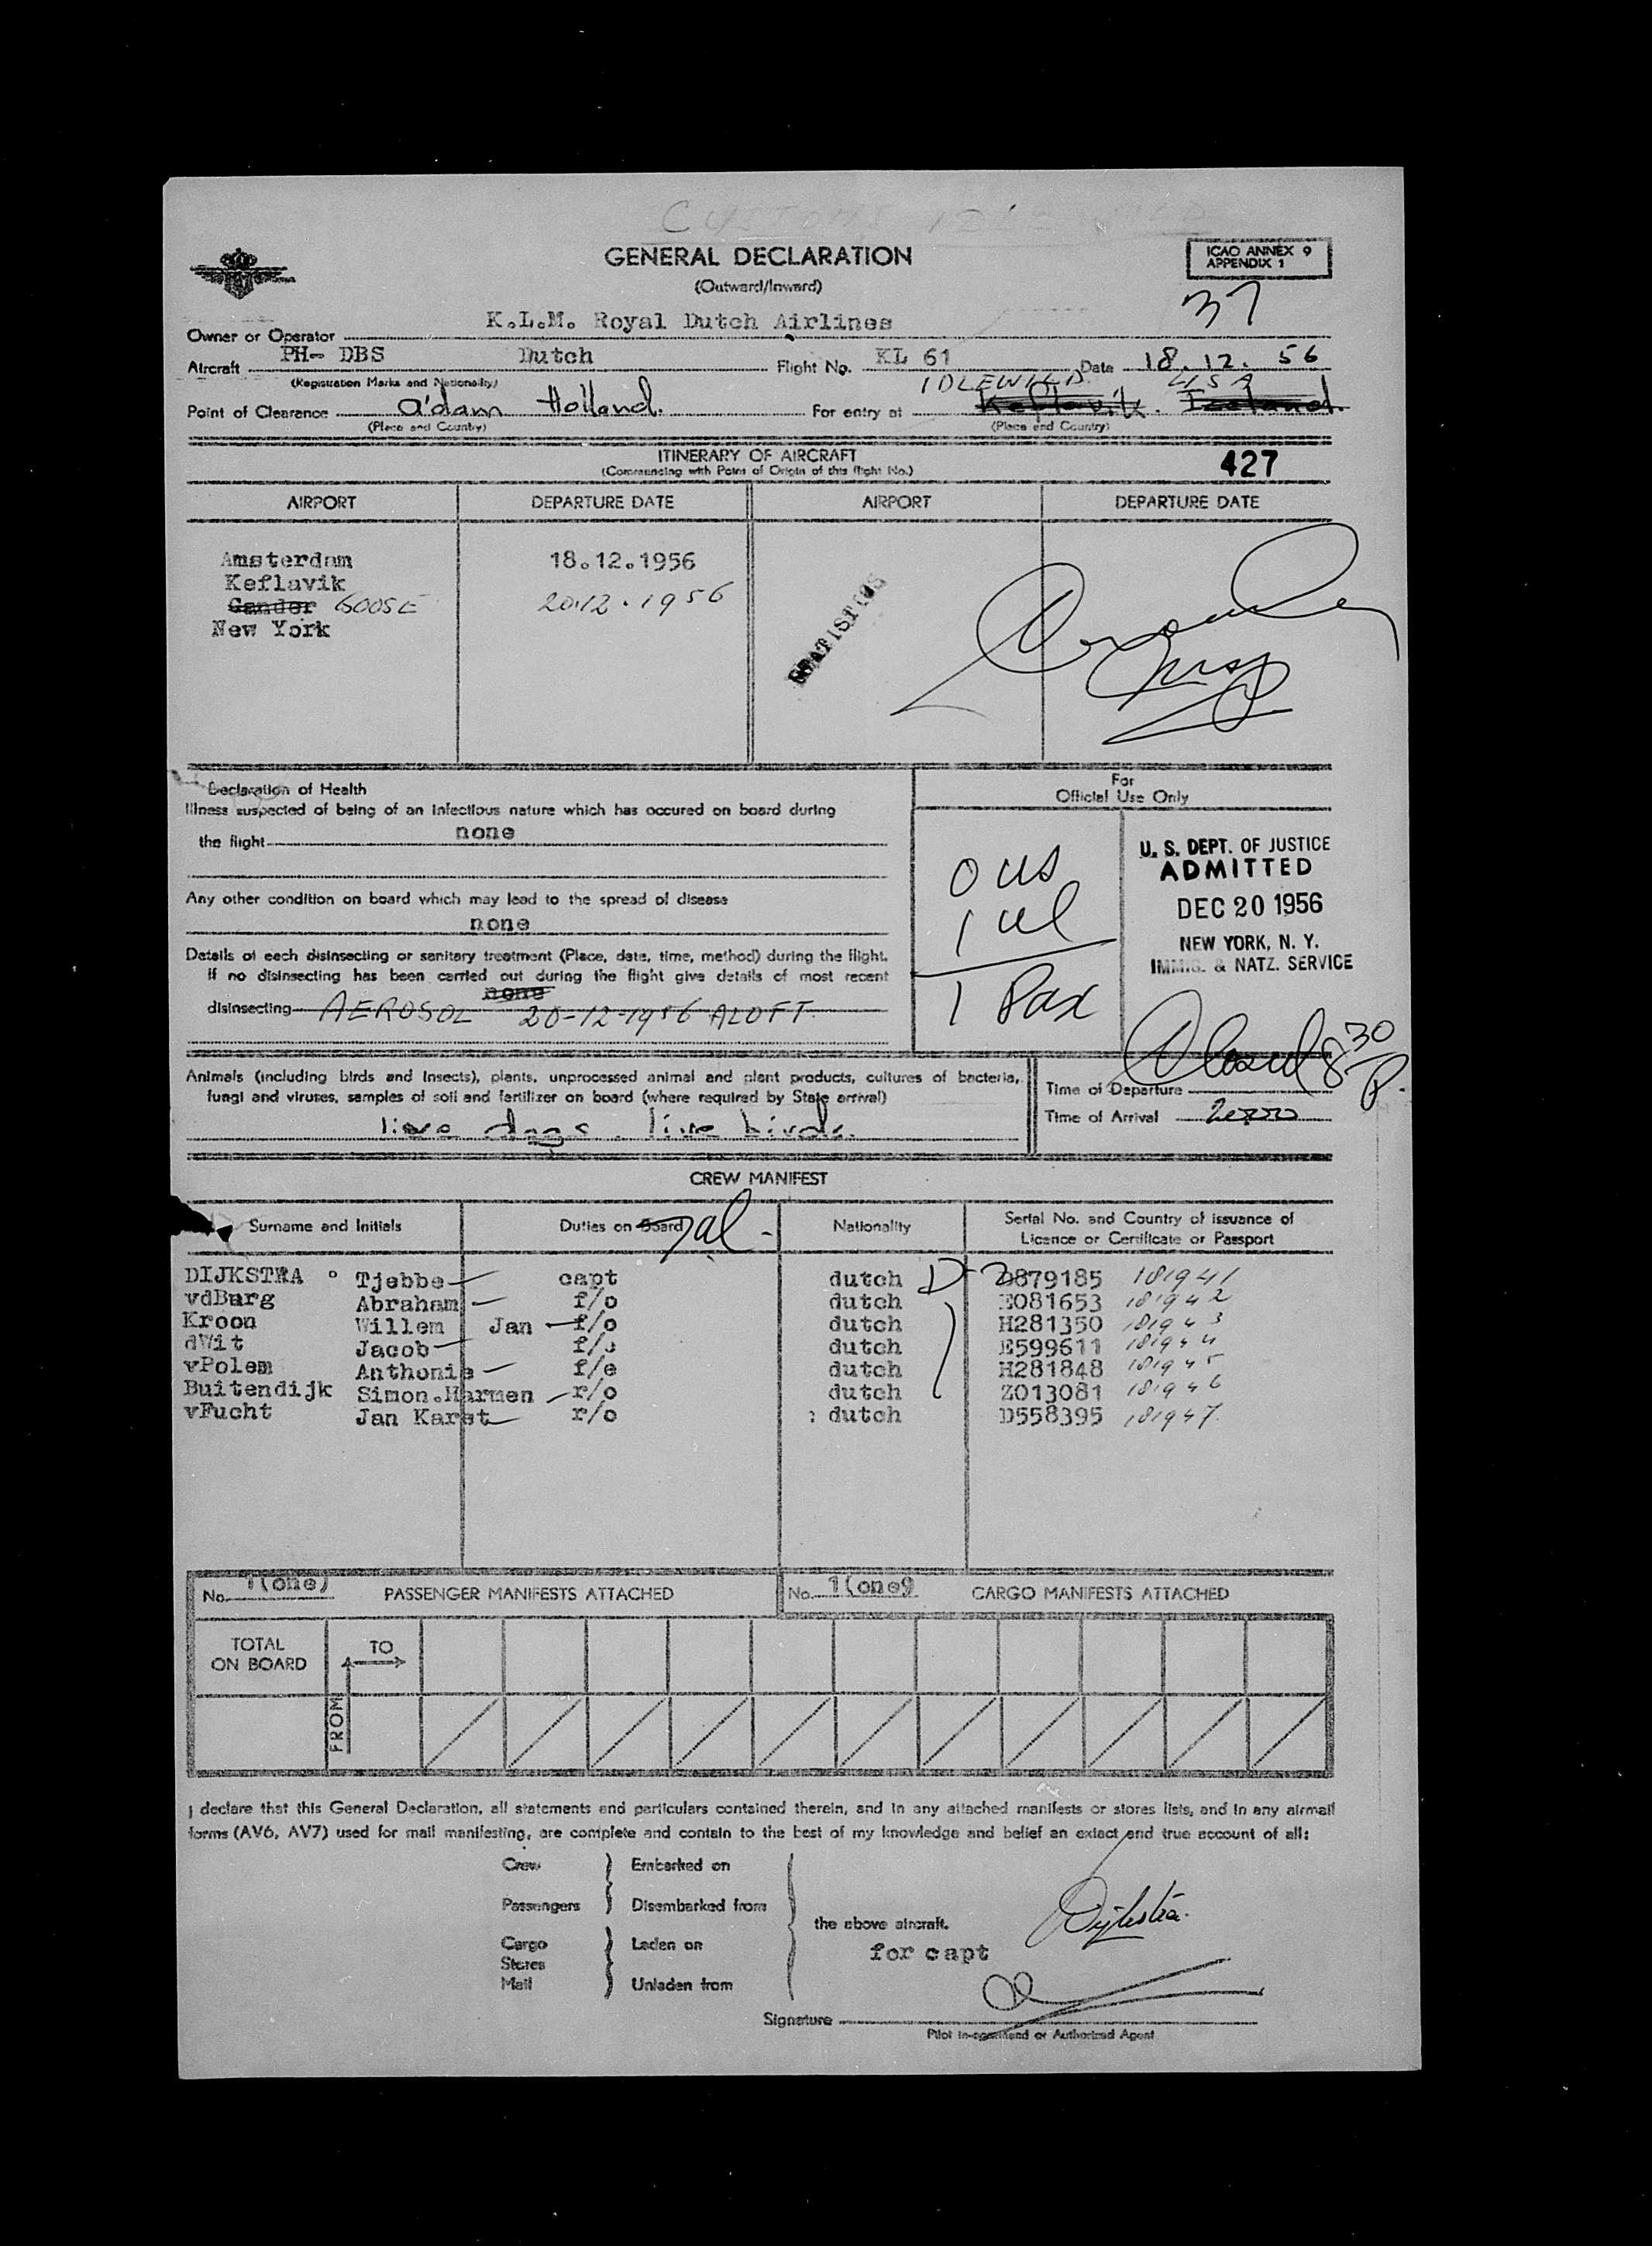 CUSTOMS IDLEWILD
GENERAL DECLARATION
(Outward/Inward)
ICAO ANNEX 9
APPENDIX 1
37
Owner or Operator K.L.M. Royal Dutch Airlines
Aircraft PH- DBS Dutch Flight No. KL 61 Date 18.12.56
(Registration Marks and Nationality) IDLEWILD USA
Point of Clearance A'dam Holland. For entry at Keflavik. Iceland.
(Place and Country) (Place and Country)
ITINERARY OF AIRCRAFT
(Commencing with Point of Origin of this flight No.)
427
AIRPORT DEPARTURE DATE AIRPORT DEPARTURE DATE
Amsterdam 18.12.1956
Keflavik
Gander GOOSE 20.12.1956
New York
STATISTICS
Declaration of Health
Illness suspected of being of an infectious nature which has occured on board during
the flight none
Any other condition on board which may lead to the spread of disease
none
Details of each disinsecting or sanitary treatment (Place, date, time, method) during the flight.
If no disinsecting has been carried out during the flight give details of most recent
none
disinsecting AEROSOL 20-12-1956 ALOFT.
For
Official Use Only
0 us
1 al
1 Pax
U. S. DEPT. OF JUSTICE
ADMITTED
DEC 20 1956
NEW YORK, N. Y.
IMMIG. & NATZ. SERVICE
Animals (including birds and insects), plants, unprocessed animal and plant products, cultures of bacteria,
fungi and viruses, samples of soil and fertilizer on board (where required by State arrival)
live dogs. live birds.
Time of Departure 8 30 P.
Time of Arrival
CREW MANIFEST
Surname and Initials Duties on Board Nationality Serial No. and Country of issuance of
Licence or Certificate or Passport
7al -
DIJKSTRA Tjebbe capt dutch D-2 D879185 181941
vdBurg Abraham f/o dutch E081653 181942
Kroon Willem Jan f/o dutch H281350 181943
dWit Jacob f/o dutch E599611 181944
vPolem Anthonie f/e dutch H281848 181945
Buitendijk Simon.Harmen r/o dutch Z013081 181946
vFucht Jan Karst r/o : dutch D558395 181947
No. 1(one) PASSENGER MANIFESTS ATTACHED No. 1(one) CARGO MANIFESTS ATTACHED
TOTAL
ON BOARD
TO
FROM
I declare that this General Declaration, all statements and particulars contained therein, and in any attached manifests or stores lists, and in any airmail
forms (AV6, AV7) used for mail manifesting, are complete and contain to the best of my knowledge and belief an extact and true account of all:
Crew Embarked on
Passengers Disembarked from
the above aircraft. Dijkstra.
Cargo Laden on
for capt
Stores
Mail Unladen from
Signature
Pilot in-command or Authorized Agent